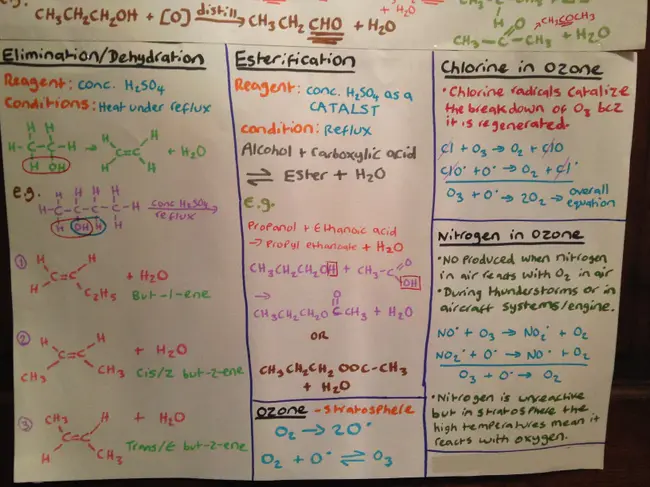 e.g.
CH₃CH₂CH₂OH + [O] distill → CH₃CH₂CHO + H₂O
+ H₂O
H
O
CH₃COCH₃
CH₃ - C - CH₃ + H₂O
Elimination/Dehydration
Reagent: conc. H₂SO₄
Conditions: Heat under reflux
H H
H-C-C-H → H H C=C H H + H₂O
H OH
e.g.
H H H H
H-C-C-C-C-H conc H₂SO₄ → reflux
H OH H H
① H H C=C H C₂H₅ + H₂O
But-1-ene
② H H C=C CH₃ CH₃ + H₂O
Cis/Z but-2-ene
③ CH₃ H C=C H CH₃ + H₂O
Trans/E but-2-ene
Esterification
Reagent: conc. H₂SO₄ as a
CATALST
condition: Reflux
Alcohol + Carboxylic acid
⇌ Ester + H₂O
E.g.
Propanol + Ethanoic acid
→ Propyl ethanoate + H₂O
CH₃CH₂CH₂OH + CH₃-C O OH
→ O
CH₃CH₂CH₂O C CH₃ + H₂O
OR
CH₃CH₂CH₂ OOC-CH₃
+ H₂O
OZONE - stratosphere
O₂ → 2O•
O₂ + O• ⇌ O₃
Chlorine in Ozone
• Chlorine radicals catalize
the breakdown of O₃ bcz
it is regenerated.
Cl + O₃ → O₂ + ClO
ClO• + O• → O₂ + Cl•
O₃ + O• → 2O₂ → overall
equation
Nitrogen in Ozone
• NO produced when nitrogen
in air reacts with O₂ in air
• During thunderstorms or in
aircraft systems/engine.
NO• + O₃ → NO₂• + O₂
NO₂• + O• → NO• + O₂
O₃ + O• → O₂
• Nitrogen is unreactive
but in stratosphere the
high temperatures mean it
reacts with oxygen.